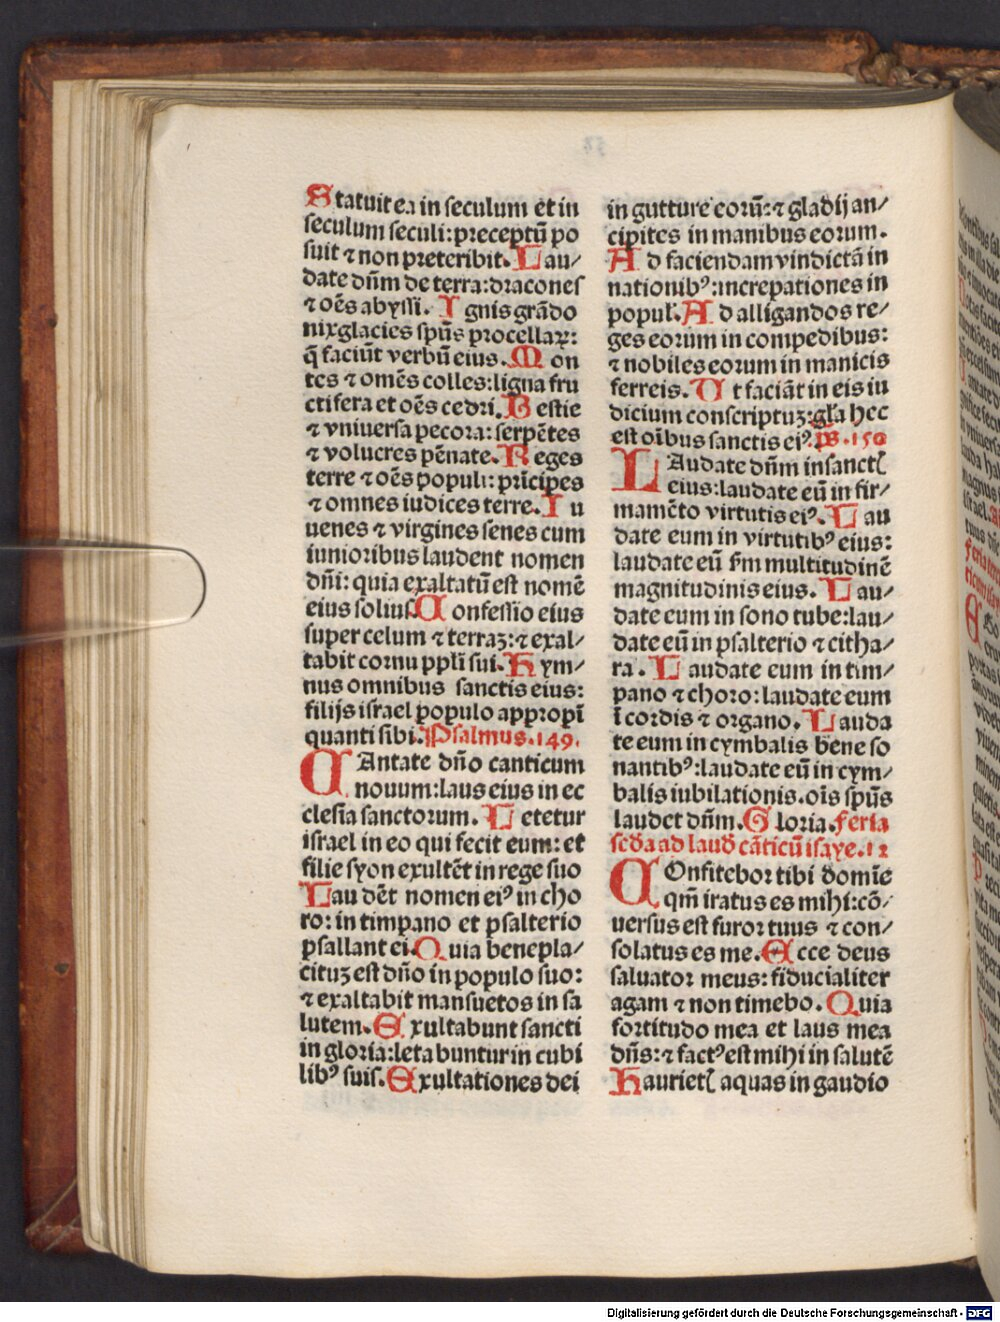 Statuit ea in seculum et in
seculum seculi: preceptū po
suit ⁊ non preteribit. Lau/
date dn̄m de terra: dracones
⁊ oēs abyssi. Ignis grādo
nix glacies sp̄us procellaꝝ:
q̄ faciūt verbū eius. Mon
tes ⁊ omēs colles: ligna fru
ctifera et oēs cedri. Bestie
⁊ vniuersa pecora: serpētes
⁊ volucres pēnate. Reges
terre ⁊ oēs populi: prīcipes
⁊ omnes iudices terre. Iu
uenes ⁊ virgines senes cum
iunioribus laudent nomen
dn̄i: quia exaltatū est nomē
eius solius. Confessio eius
super celum ⁊ terraꝫ: ⁊ exal/
tabit cornu pp̄li sui. Hym/
nus omnibus sanctis eius:
filijs israel populo appropī
quanti sibi. Psalmus. 149.
CAntate dn̄o canticum
nouum: laus eius in ec
clesia sanctorum. Letetur
israel in eo qui fecit eum: et
filie syon exultēt in rege suo
Laudēt nomen eiꝰ in cho
ro: in timpano et psalterio
psallant ei. Quia benepla/
cituꝫ est dn̄o in populo suo:
⁊ exaltabit mansuetos in sa
lutem. Exultabunt sancti
in gloria: letabuntur in cubi
libꝰ suis. Exultationes dei
in gutture eorū: ⁊ gladij an/
cipites in manibus eorum.
Ad faciendam vindictā in
nationibꝰ: increpationes in
popul̄. Ad alligandos re/
ges eorum in compedibus:
⁊ nobiles eorum in manicis
ferreis. Ut faciāt in eis iu
dicium conscriptuꝫ: gl̄a hec
est oībus sanctis eiꝰ. Ps. 150
LAudate dn̄m in sanctꝭ
eius: laudate eū in fir/
mamēto virtutis eiꝰ. Lau
date eum in virtutibꝰ eius:
laudate eū s̄m multitudinē
magnitudinis eius. Lau/
date eum in sono tube: lau/
date eū in psalterio ⁊ citha/
ra. Laudate eum in tim/
pano ⁊ choro: laudate eum
ī cordis ⁊ organo. Lauda
te eum in cymbalis bene so
nantibꝰ: laudate eū in cym/
balis iubilationis. oīs sp̄us
laudet dn̄m. Gloria. Feria
scd̄a ad laud̄ cāticū isaye. 12
COnfitebor tibi domīe
qm̄ iratus es mihi: cō/
uersus est furor tuus ⁊ con/
solatus es me. Ecce deus
saluator meus: fiducialiter
agam ⁊ non timebo. Quia
fortitudo mea et laus mea
dn̄s: ⁊ factꝰ est mihi in salutē
Haurietꝭ aquas in gaudio
Digitalisierung gefördert durch die Deutsche Forschungsgemeinschaft - DFG